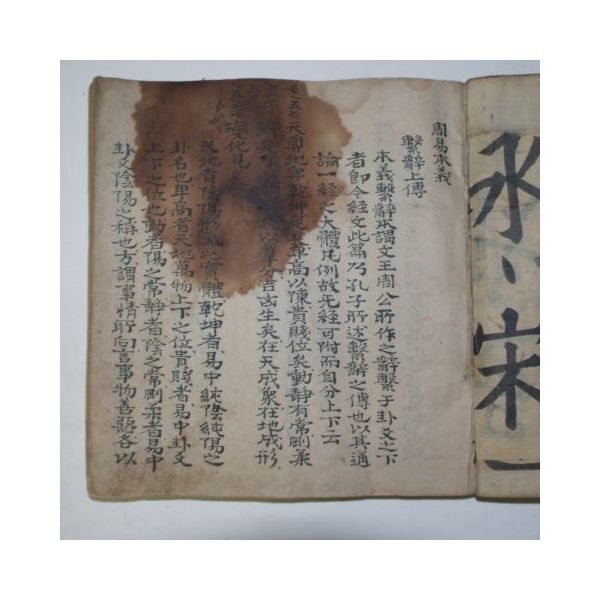 周易本義
繫辭上傳
本義繫辭本謂文王周公所作之辭繫于卦爻之下
者即今經文此篇乃孔子所述繫辭之傳也以其通
論一經之大體凡例故无經可附而自分上下云
天尊地卑乾坤定矣卑高以陳貴賤位矣動靜有常剛柔
矣方以 以羣分吉凶生矣在天成象在地成形
變化見矣
天地者陰陽形氣之實體乾坤者易中純陰純陽之
卦名也卑高者天地萬物上下之位貴賤者易中卦爻
上下之位也動者陽之常靜者陰之常剛柔者易中
卦爻陰陽之稱也方謂事情所向言事物善惡各以
承
宋
一